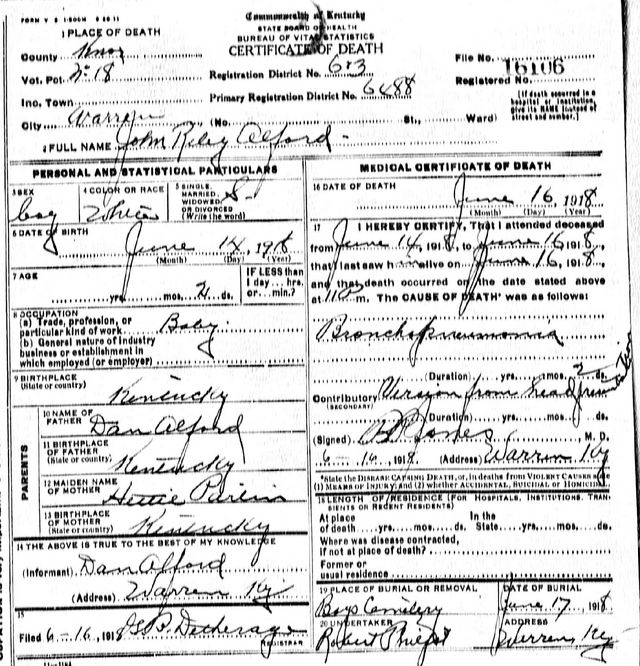 FORM V S 1-50OM 8 20 11
Commonwealth of Kentucky
STATE BOARD OF HEALTH
BUREAU OF VITAL STATISTICS
CERTIFICATE OF DEATH
1 PLACE OF DEATH
County Knox
Vot. Pct. No 18
Inc. Town
City Warren (No. St., Ward)
Registration District No. 603
Primary Registration District No. 6488
File No.
Registered No. 16106
(If death occurred in a hospital or institution, give its NAME instead of street and number.)
2 FULL NAME John Riley Alford
PERSONAL AND STATISTICAL PARTICULARS
3 SEX boy
4 COLOR OR RACE White
5 SINGLE, MARRIED, WIDOWED OR DIVORCED (Write the word) S
6 DATE OF BIRTH June 14, 1918
(Month) (Day) (Year)
7 AGE yrs. mos. 2 ds.
IF LESS than 1 day... hrs. or... min.?
8 OCCUPATION
(a) Trade, profession, or particular kind of work Baby
(b) General nature of industry business or establishment in which employed (or employer)
9 BIRTHPLACE (State or country) Kentucky
PARENTS
10 NAME OF FATHER Dan Alford
11 BIRTHPLACE OF FATHER (State or country) Kentucky
12 MAIDEN NAME OF MOTHER Hettie
13 BIRTHPLACE OF MOTHER (State or country) Kentucky
14 THE ABOVE IS TRUE TO THE BEST OF MY KNOWLEDGE
(Informant) Dan Alford
(Address) Warren Ky
15
Filed 6-16, 1918
REGISTRAR
MEDICAL CERTIFICATE OF DEATH
16 DATE OF DEATH June 16, 1918
(Month) (Day) (Year)
17 I HEREBY CERTIFY, That I attended deceased
from June 14, 1918, to June 16 1918,
that I last saw him alive on June 16, 1918,
and that death occurred on the date stated above
at m. The CAUSE OF DEATH* was as follows:
Bronchopneumonia
(Duration) yrs. mos. 2 ds.
Contributory (SECONDARY) Version from head
(Duration) yrs. mos. ds.
(Signed) Jones M. D.
6-16, 1918. (Address) Warren Ky
*State the DISEASE CAUSING DEATH, or, in deaths from VIOLENT CAUSES state (1) MEANS OF INJURY; and (2) whether ACCIDENTAL, SUICIDAL or HOMICIDAL.
18 LENGTH OF RESIDENCE (FOR HOSPITALS, INSTITUTIONS, TRANSIENTS OR RECENT RESIDENTS)
At place of death yrs. mos. ds. In the State yrs. mos. ds.
Where was disease contracted, if not at place of death?
Former or usual residence
19 PLACE OF BURIAL OR REMOVAL Boys Cemetery
DATE OF BURIAL June 17, 1918
20 UNDERTAKER Robert
ADDRESS Warren Ky